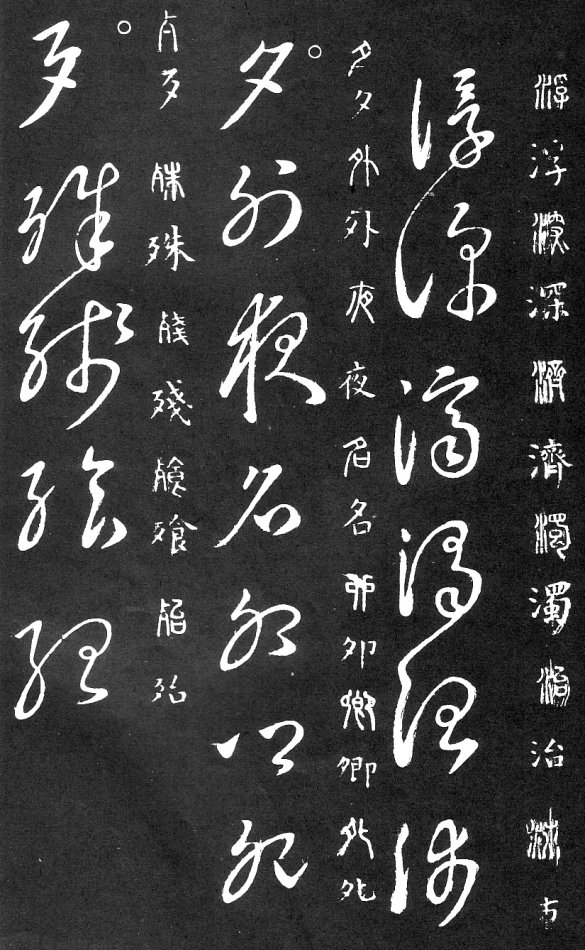 浮浮深深濟濟濁濁治治
浮深濟濁治
夕夕外外夜夜名名卯卯卿卿
夕外夜名卯卿
歹歹殊殊殘殘飱飱殆殆
歹殊殘飱殆